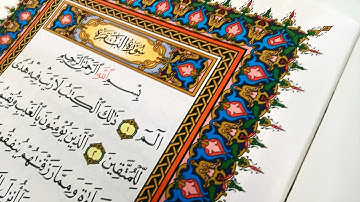 سُورَةُ الْبَقَرَةِ
بِسْمِ اللَّهِ الرَّحْمَٰنِ الرَّحِيمِ
الٓمٓ ١ ذَٰلِكَ الْكِتَابُ لَا رَيْبَ فِيهِ هُدًى
لِّلْمُتَّقِينَ ٢ الَّذِينَ يُؤْمِنُونَ بِالْغَيْبِ
وَمِمَّا رَزَقْنَاهُمْ
أُنزِلَ